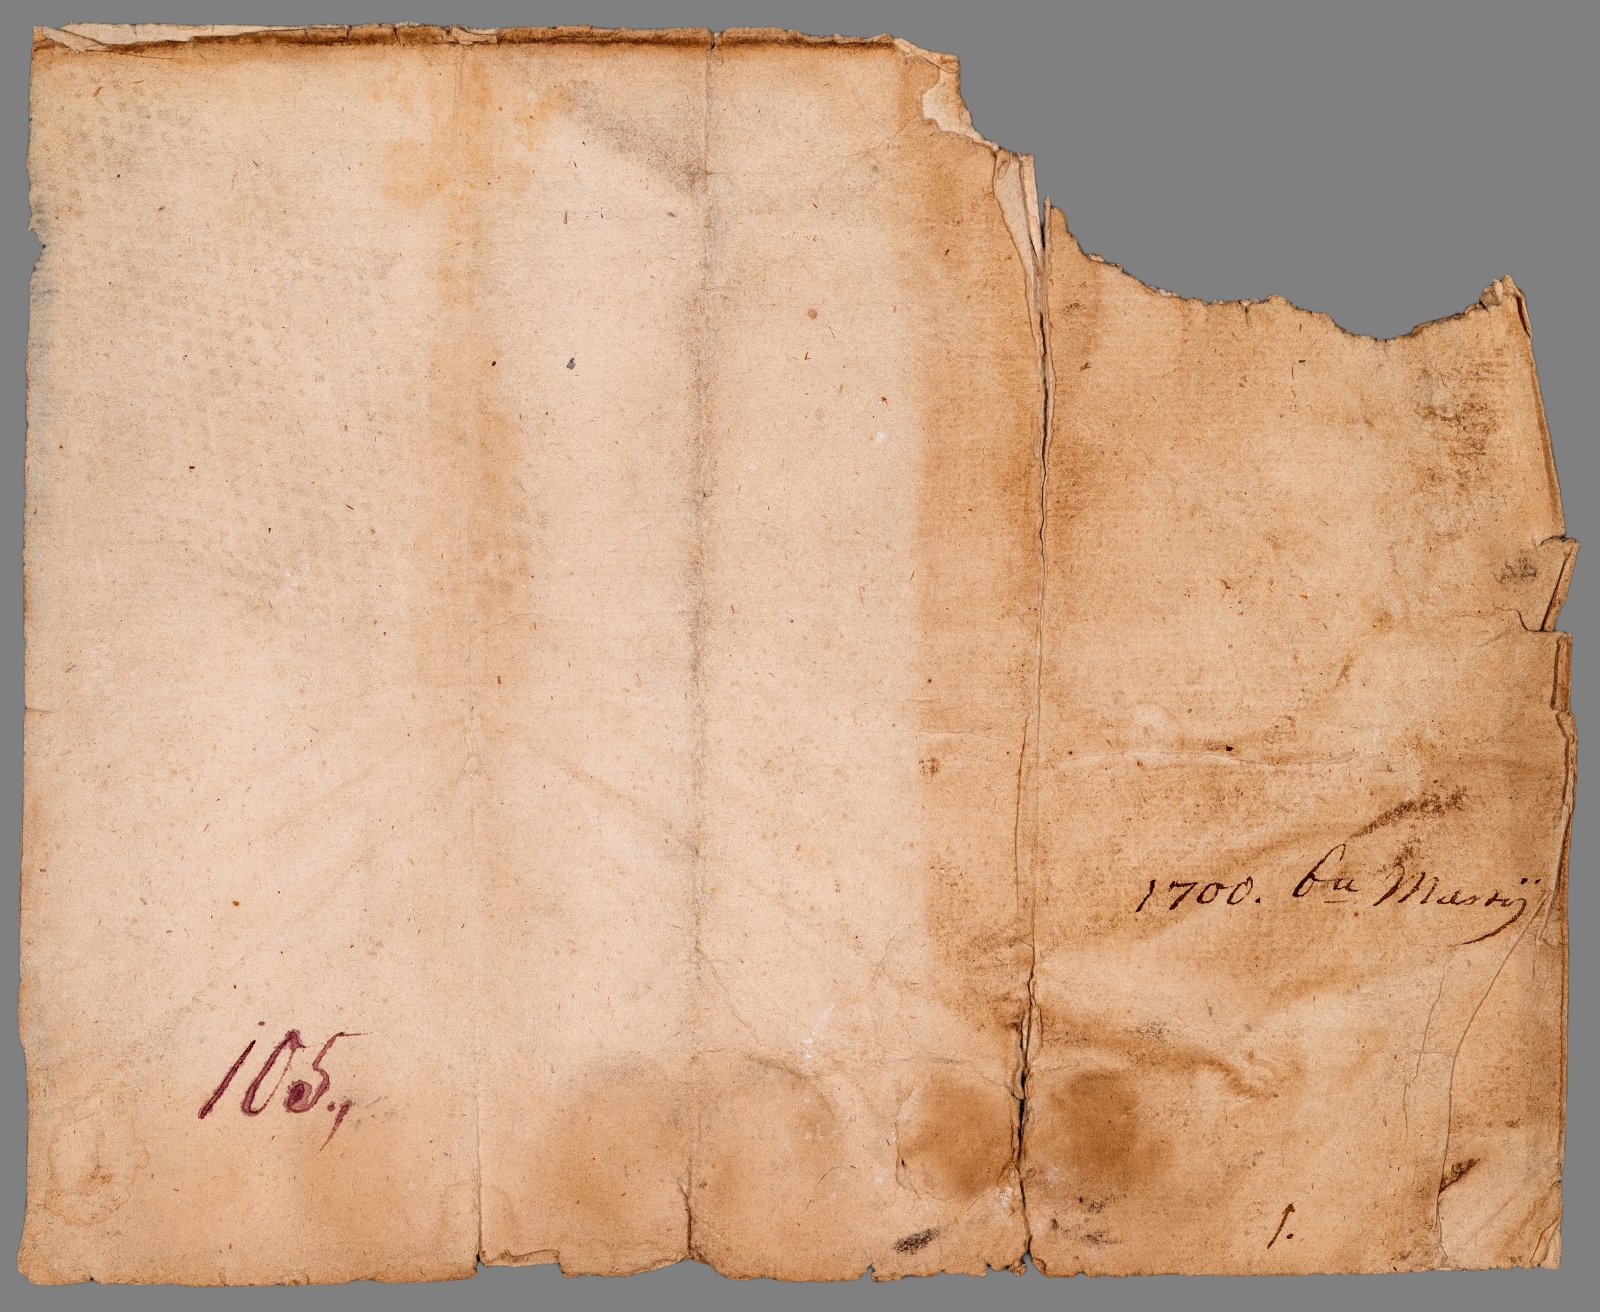 1700. 6ta Martij
105.,
1.